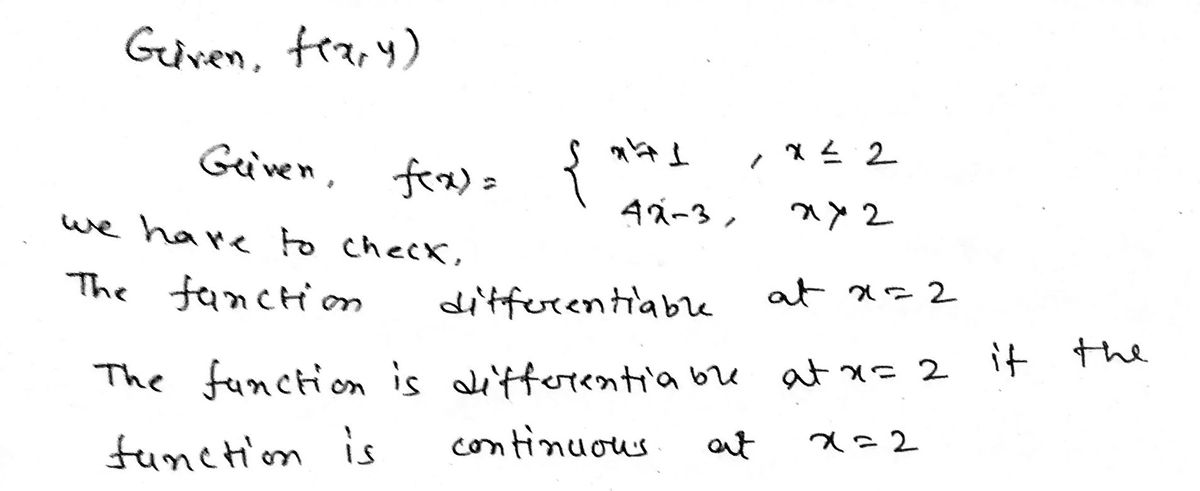 Given, f(x, y)
Given, f(x) = { x²+1 , x ≤ 2
4x-3, x > 2
we have to check,
The function differentiable at x = 2
The function is differentiable at x = 2 if the
function is continuous at x = 2